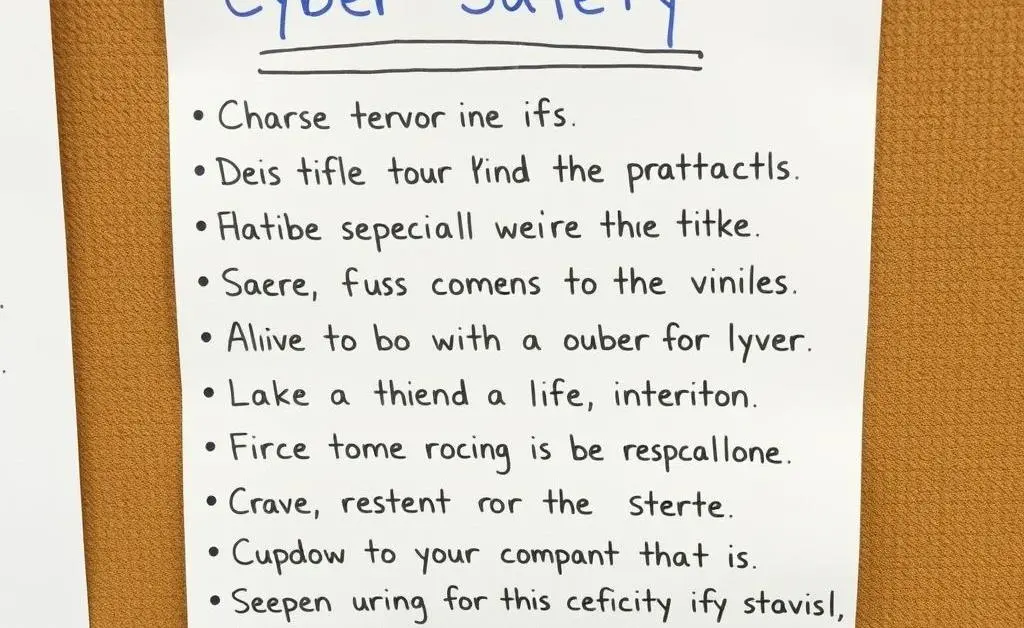 Cyber Safety
• Charse tervor ine ifs.
• Deis tifle tour Yind the prattactls.
• Hatibe sepeciall weire thie titke.
• Saere, fuss comens to the viniles.
• Aliive to bo with a ouber for lyver.
• Lake a thiend a life, interiton.
• Firce tome rocing is be respcallone.
• Crave, restent ror the sterte.
• Cupdow to your compant that is.
• Seepen uring for this ceficity ify stavisl,